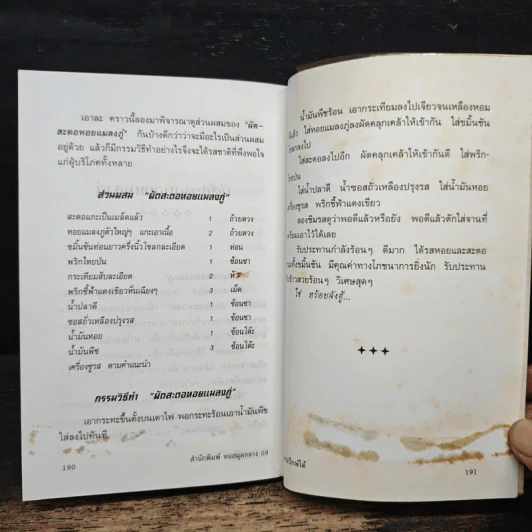 เอาละ คราวนี้ลองมาพิจารณาดูส่วนผสมของ "ผัด-
สะตอหอยแมลงภู่" กันบ้างดีกว่าว่าจะมีอะไรเป็นส่วนผสม
อยู่ด้วย แล้วก็มีกรรมวิธีทำอย่างไรจึงจะได้รสชาติที่พึงพอใจ
แก่ผู้บริโภคทั้งหลาย
ส่วนผสม "ผัดสะตอหอยแมลงภู่"
สะตอแกะเป็นเมล็ดแล้ว 1 ถ้วยตวง
หอยแมลงภู่ตัวใหญ่ๆ แกะเอาเนื้อ 2 ถ้วยตวง
ขมิ้นชันท่อนยาวครึ่งนิ้วโขลกละเอียด 1 ท่อน
พริกไทยป่น 1 ช้อนชา
กระเทียมสับละเอียด 2 หัว
พริกชี้ฟ้าแดงเขียวหั่นเฉียงๆ 3 เม็ด
น้ำปลาดี 1 ช้อนชา
ซอสถั่วเหลืองปรุงรส 1 ช้อนชา
น้ำมันหอย 1 ช้อนโต๊ะ
น้ำมันพืช 3 ช้อนโต๊ะ
เครื่องชูรส ตามคำแนะนำ
กรรมวิธีทำ "ผัดสะตอหอยแมลงภู่"
เอากระทะขึ้นตั้งบนเตาไฟ พอกระทะร้อนเอาน้ำมันพืช
ใส่ลงไปทันที
190 สำนักพิมพ์ หอสมุดกลาง 09
น้ำมันพืชร้อน เอากระเทียมลงไปเจียวจนเหลืองหอม
แล้ว ใส่หอยแมลงภู่ลงผัดคลุกเคล้าให้เข้ากัน ใส่ขมิ้นชัน
ลงไป
ใส่สะตอลงไปอีก ผัดคลุกเคล้าให้เข้ากันดี ใส่พริก-
ไทยป่น
ใส่น้ำปลาดี น้ำซอสถั่วเหลืองปรุงรส ใส่น้ำมันหอย
เครื่องชูรส พริกชี้ฟ้าแดงเขียว
ลองชิมรสดูว่าพอดีแล้วหรือยัง พอดีแล้วตักใส่จานที่
เอาไว้ได้เลย
รับประทานกำลังร้อนๆ ดีมาก ได้รสหอยและสะตอ
ทั้งขมิ้นชัน มีคุณค่าทางโภชนาการยิ่งนัก รับประทาน
ข้าวสวยร้อนๆ วิเศษสุดๆ
ใช่ หร้อยจังฮู้...
191